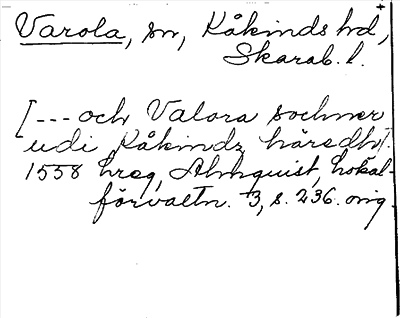 Varola, sn, Kåkinds hd,
Skarab. l.
[--- och Valora sochner
udi Kåkindz häredh].
1558 hreg, Almquist, Lokal-
förvaltn. 3, s. 236. orig.